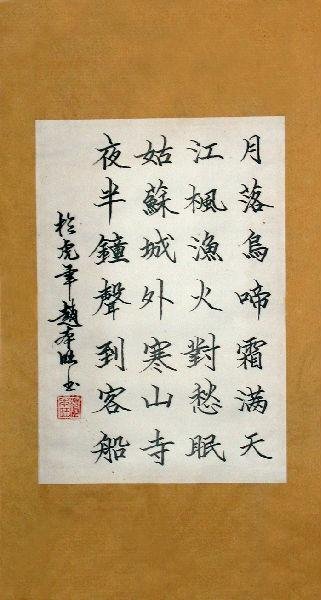 月落烏啼霜滿天
江楓漁火對愁眠
姑蘇城外寒山寺
夜半鐘聲到客船
於虎年趙